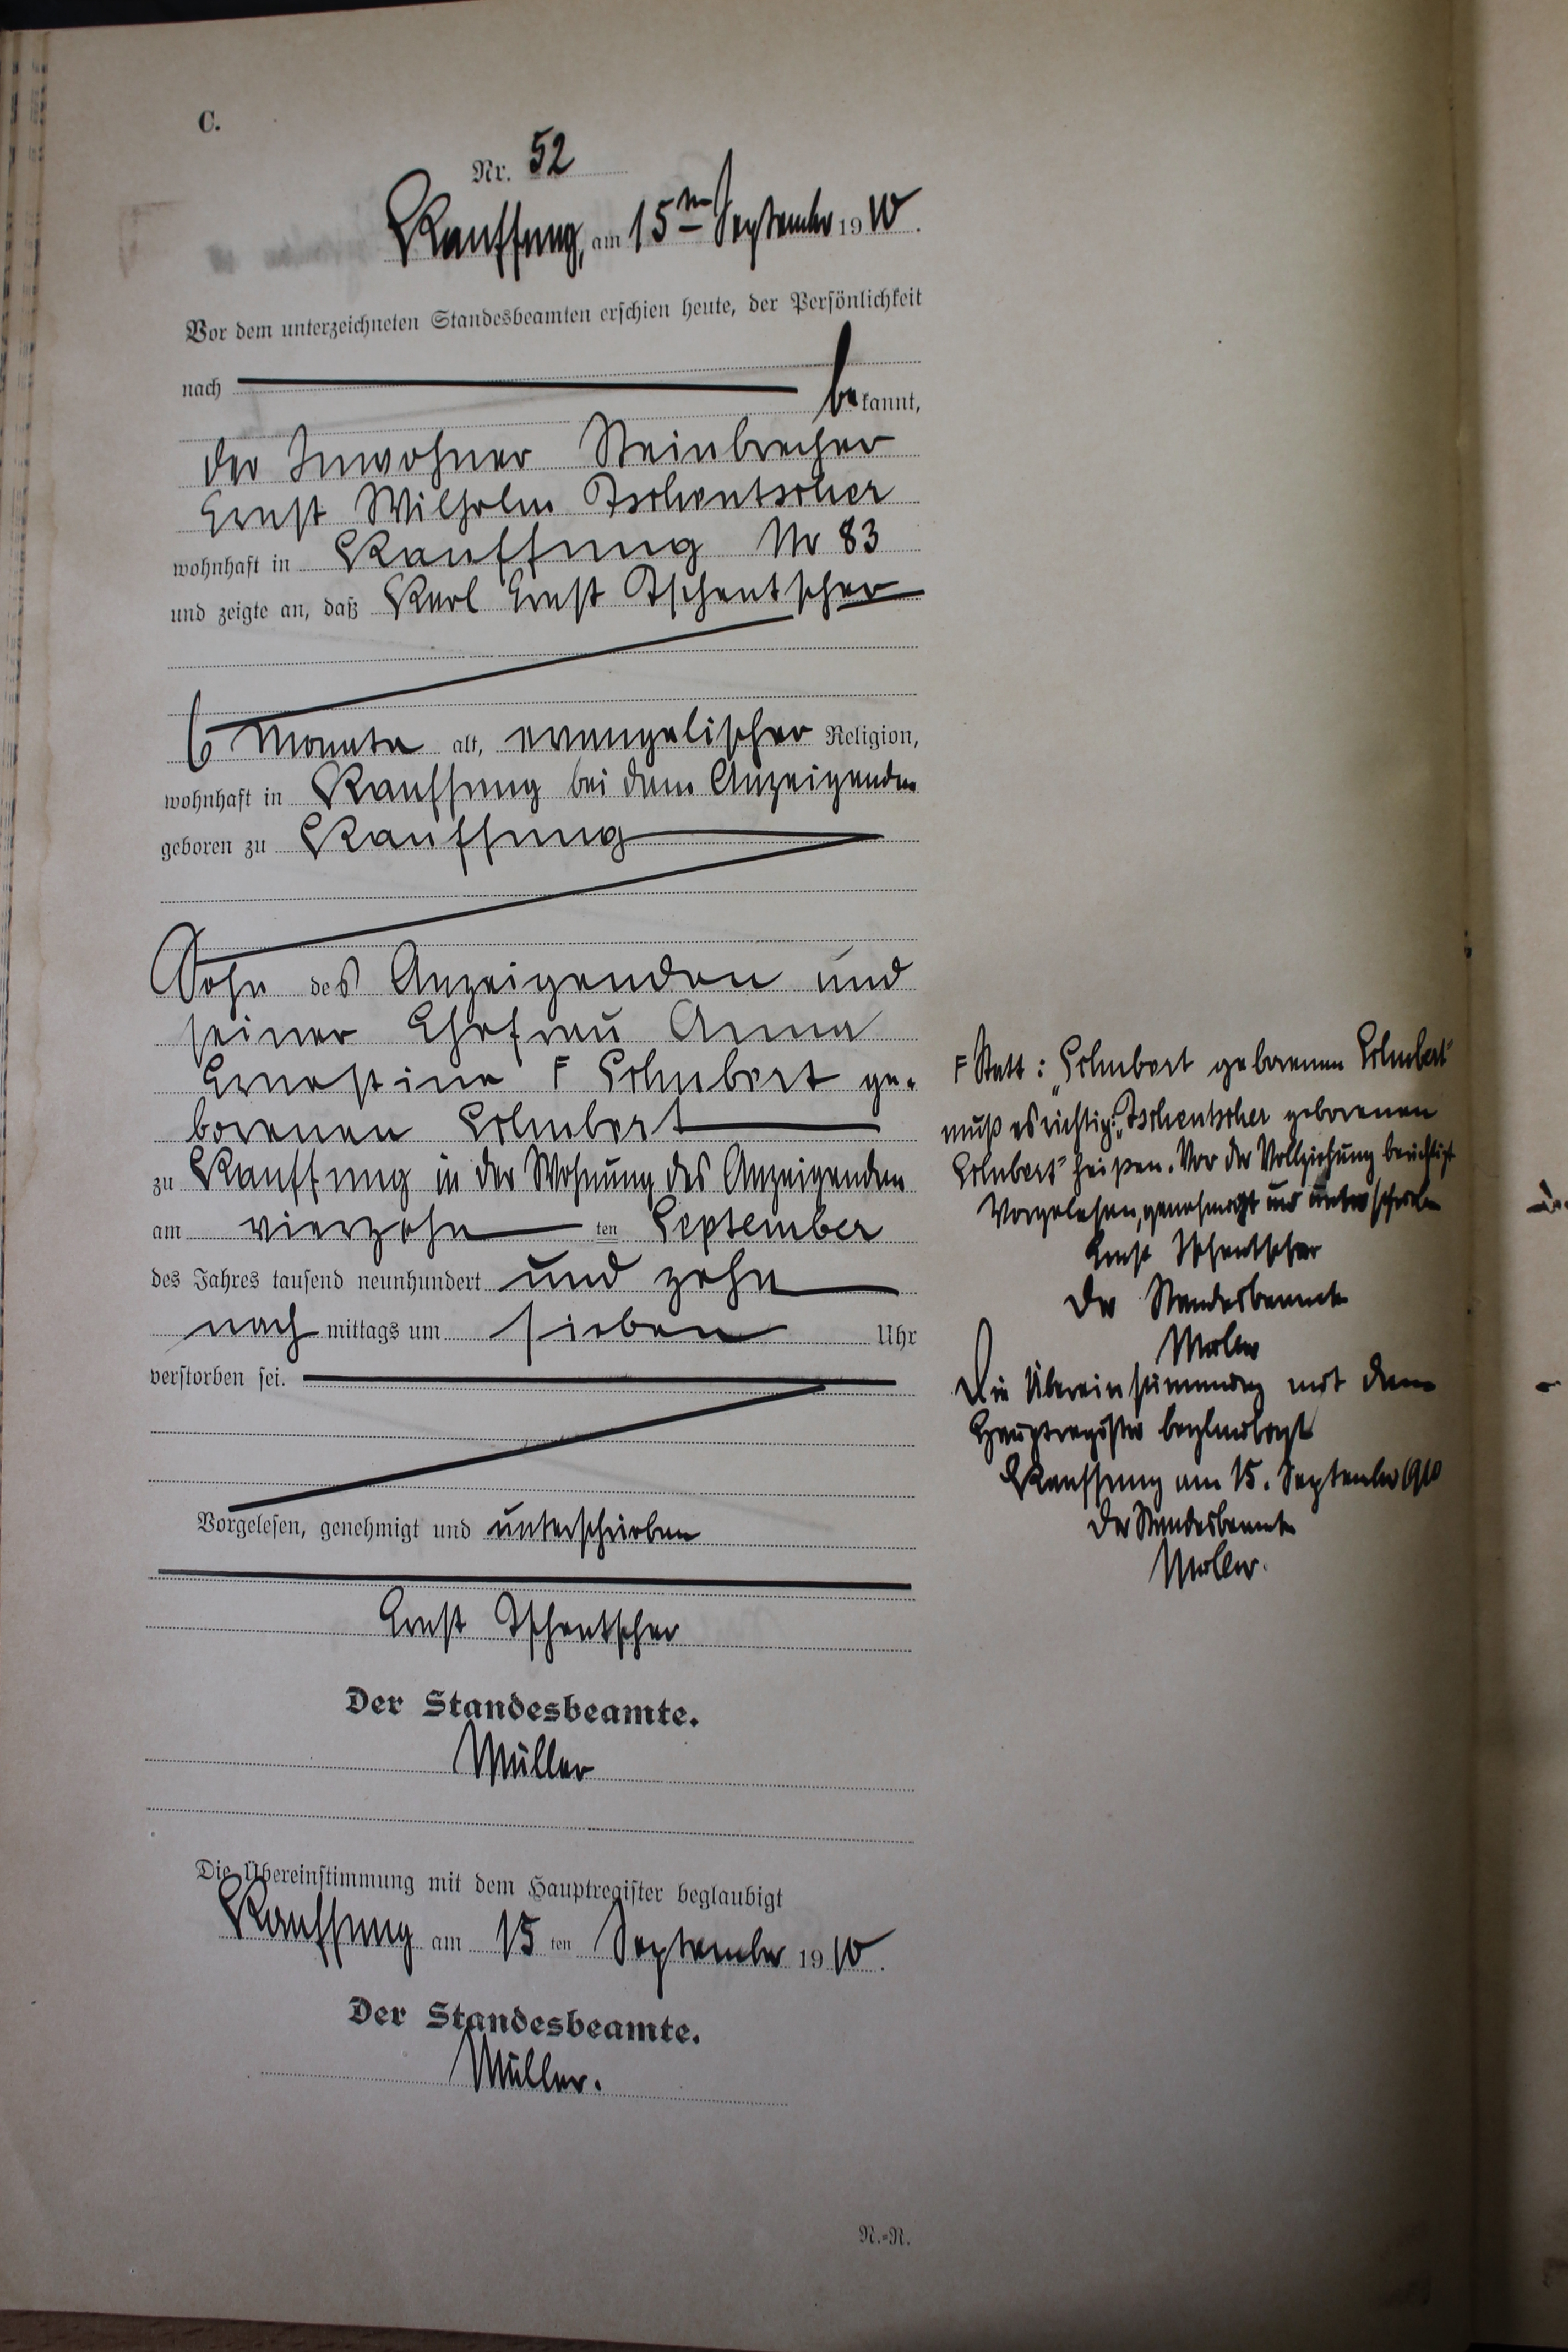 C.
Nr. 52
Kauffung, am 15ten September 1910.
Vor dem unterzeichneten Standesbeamten erschien heute, der Persönlichkeit
nach bekannt,
der Inwohner Steinbrecher
Ernst Wilhelm Tschentscher
wohnhaft in Kauffung Nr 83
und zeigte an, daß Karl Ernst Tschentscher
6 Monate alt, evangelischer Religion,
wohnhaft in Kauffung bei dem Anzeigenden
geboren zu Kauffung
Sohn des Anzeigenden und
seiner Ehefrau Anna
Ernestine F Schubert ge-
borenen Schubert
zu Kauffung in der Wohnung des Anzeigenden
am vierzehn ten September
des Jahres tausend neunhundert und zehn
nach mittags um sieben Uhr
verstorben sei.
Vorgelesen, genehmigt und unterschrieben
Ernst Tschentscher
Der Standesbeamte.
Müller
Die Übereinstimmung mit dem Hauptregister beglaubigt
Kauffung am 15 ten September 1910.
Der Standesbeamte.
Müller.
N.=N.
F Statt: „Schubert geborenen Schubert"
muß es richtig: „Tschentscher geborenen
Schubert" heißen. Vor der Vollziehung berichtigt
Vorgelesen, genehmigt und unterschrieben
Ernst Tschentscher
Der Standesbeamte
Müller
Die Übereinstimmung mit dem
Hauptregister beglaubigt
Kauffung am 15. September 1910
Der Standesbeamte
Müller.